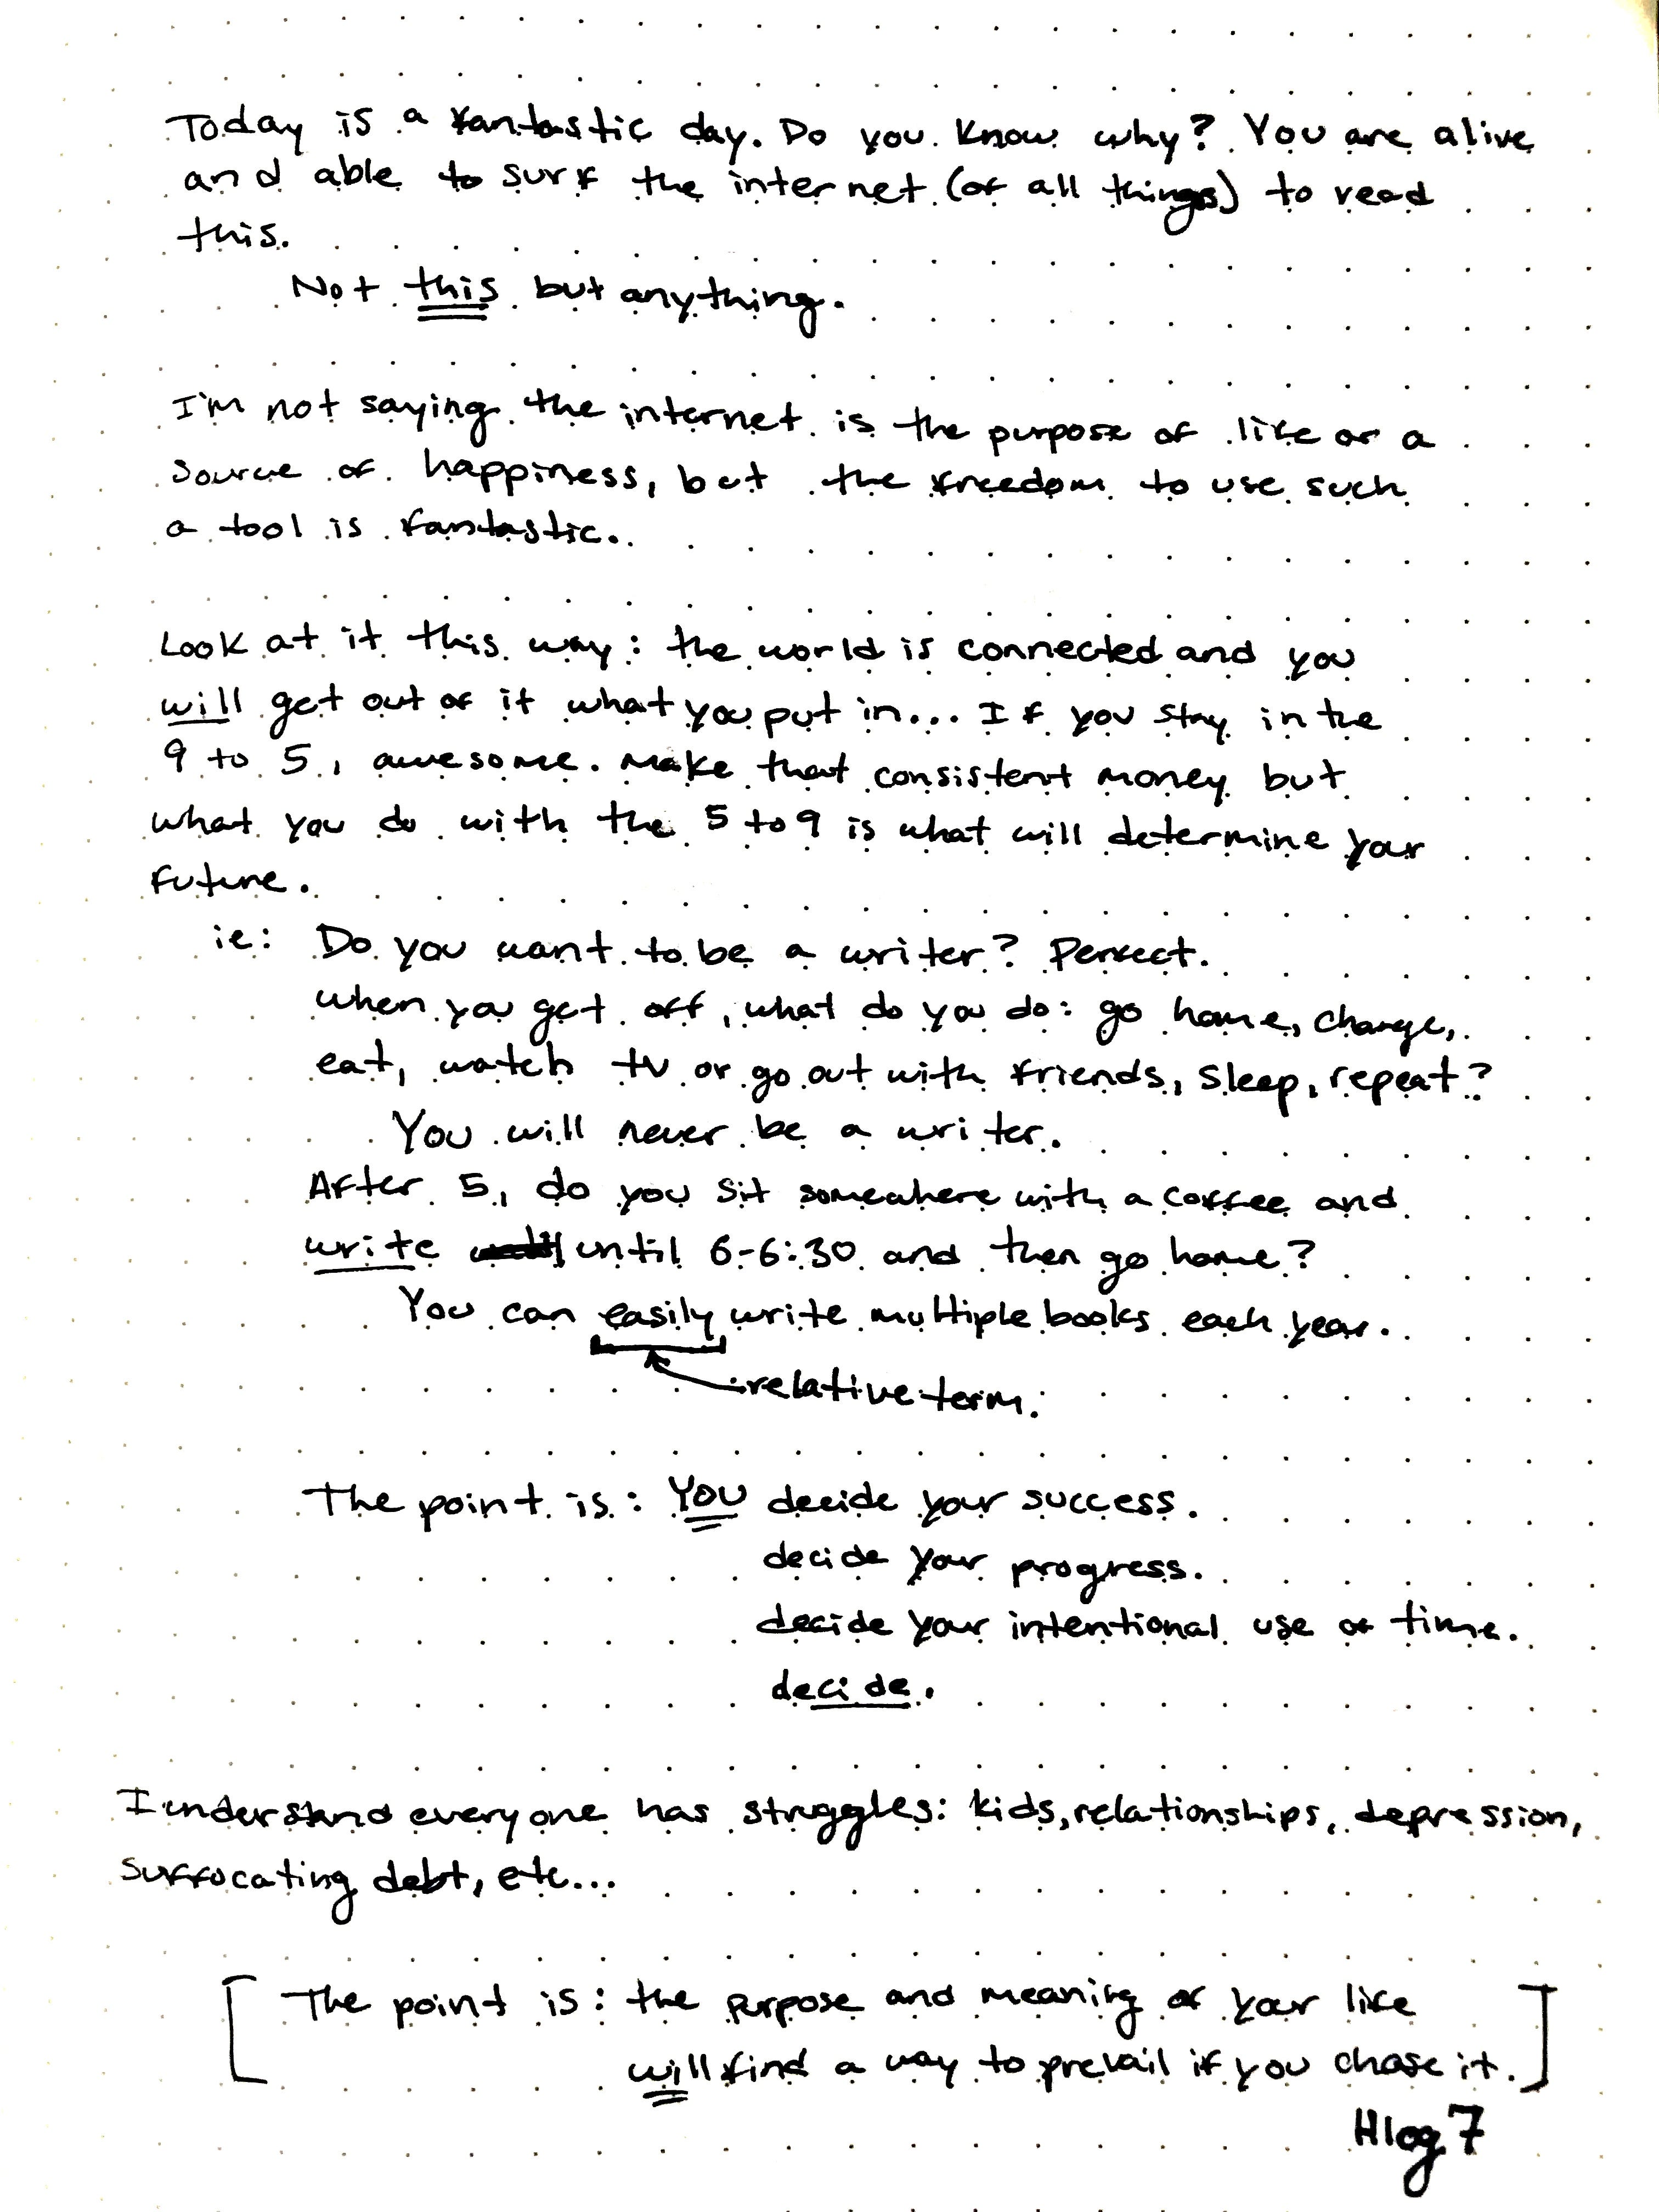 Today is a fantastic day. Do you know why? You are alive
and able to surf the internet (of all things) to read
this.
Not this but anything.
I'm not saying the internet is the purpose of life or a
source of happiness, but the freedom to use such
a tool is fantastic.
Look at it this way: the world is connected and you
will get out of it what you put in... If you stay in the
9 to 5, awesome. Make that consistent money but
what you do with the 5 to 9 is what will determine your
future.
ie: Do you want to be a writer? Perfect.
when you get off, what do you do: go home, change,
eat, watch tv or go out with friends, sleep, repeat?
You will never be a writer.
After 5, do you sit somewhere with a coffee and
write until 6-6:30 and then go home?
You can easily write multiple books each year.
relative term.
The point is: YOU decide your success.
decide your progress.
decide your intentional use of time.
decide.
I understand everyone has struggles: kids, relationships, depression,
suffocating debt, etc...
[The point is: the purpose and meaning of your life
will find a way to prevail if you chase it.]
Hlog 7